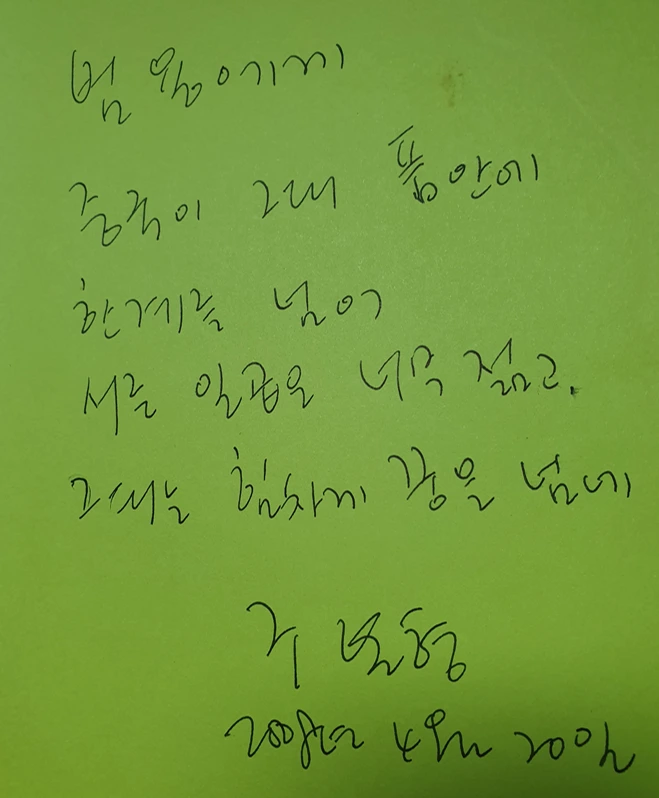 범용에게
중국이 그대 품안에
한계를 넘어
서른 일곱은 너무 젊고.
그대는 힘차게 꿈을 넘네
2008년 4월 20일